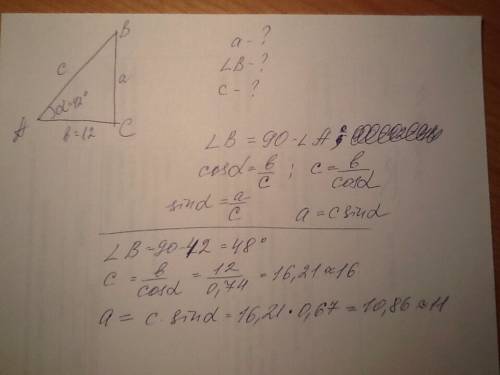 B
c
a
α=42°
A
b=12
C
a-?
∠B-?
c-?
∠B=90-∠A;
cosα=b/c ; c=b/cosα
sinα=a/c a=c sinα
∠B=90-42=48°
c=b/cosα=12/0,74=16,21≈16
a=c·sinα=16,21·0,67=10,86≈11